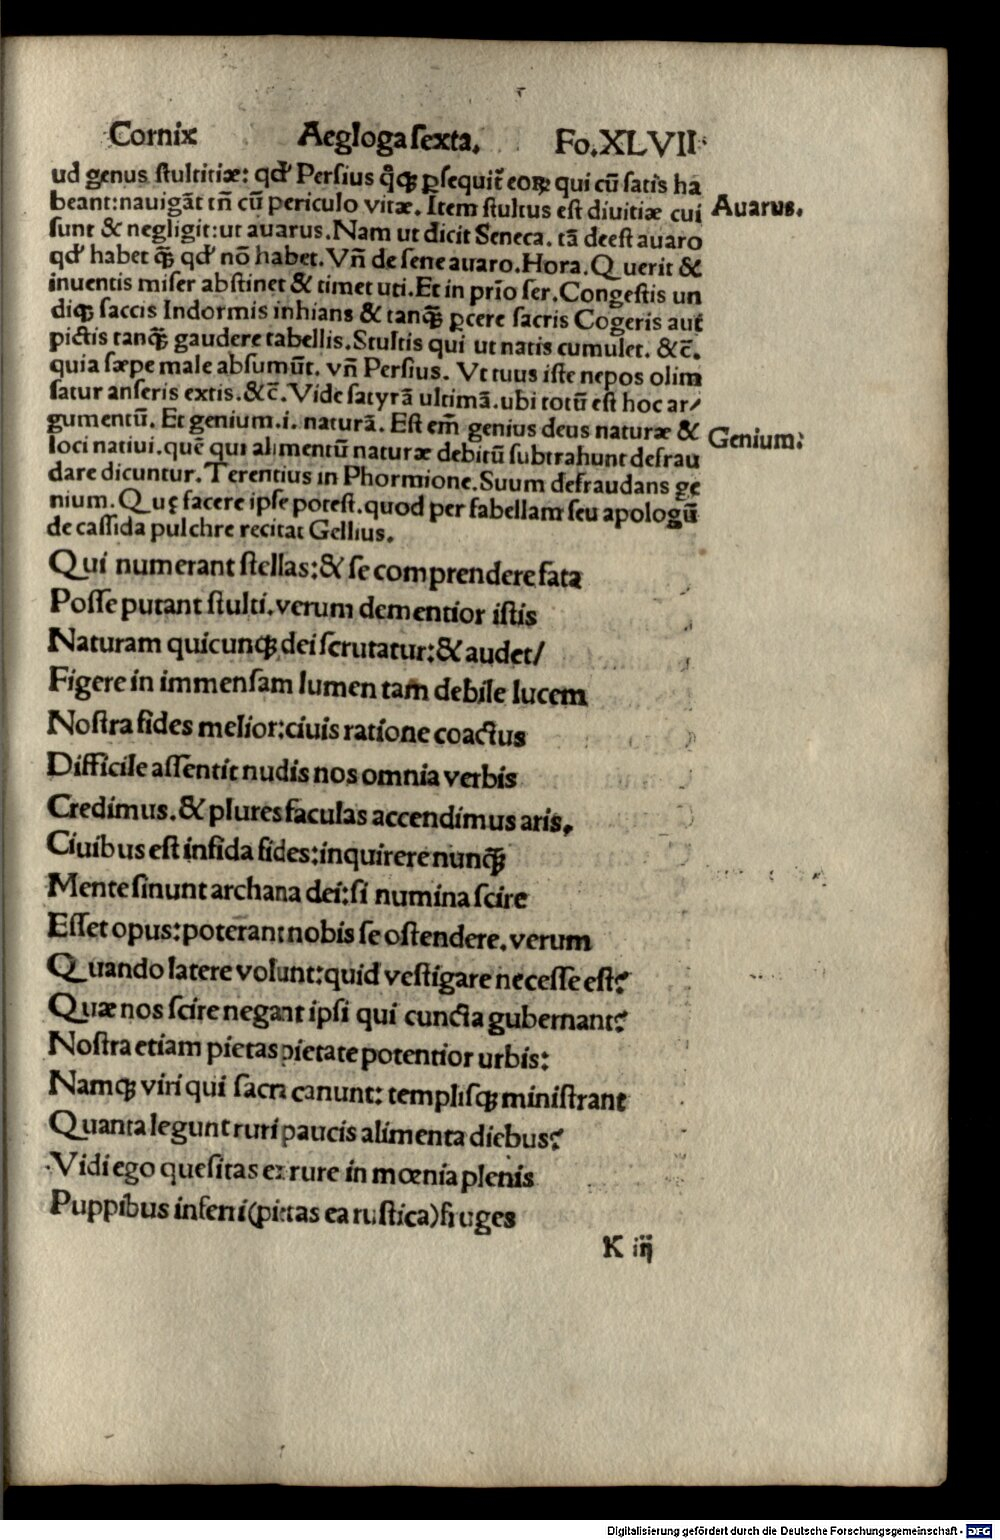 Cornix Aegloga sexta. Fo.XLVII.
ud genus stultitiæ: qđ Persius q̊q̃ ꝑsequit̃ eoꝝ qui cũ satis ha
beant:nauigãt tñ cũ periculo vitæ. Item stultus est diuitiæ cui
sunt & negligit:ut auarus.Nam ut dicit Seneca. tã deest auaro
qđ habet q̃ꝫ qđ nõ habet.Vñ de sene auaro.Hora.Querit &
inuentis miser abstinet & timet uti.Et in prĩo ser.Congestis un
diqꝫ saccis Indormis inhians & tanq̃ꝫ ꝑcere sacris Cogeris aut
pictis tanq̃ꝫ gaudere tabellis.Stultis qui ut natis cumulet. &c̃.
quia sæpe male absumũt. vñ Persius. Vt tuus iste nepos olim
satur anseris extis.&c̃.Vide satyrã ultimã.ubi totũ est hoc ar/
gumentũ. Et genium.i. naturã. Est em̃ genius deus naturæ &
loci natiui.quẽ qui alimentũ naturæ debitũ subtrahunt defrau
dare dicuntur.Terentius in Phormione.Suum defraudans ge
nium.Quę facere ipse potest.quod per fabellam seu apologũ
de cassida pulchre recitat Gellius.
Auarus.
Genium:
Qui numerant stellas:& se comprendere fata
Posse putant stulti.verum dementior istis
Naturam quicunqꝫ dei scrutatur:& audet/
Figere in immensam lumen tam debile lucem
Nostra fides melior:ciuis ratione coactus
Difficile assentit nudis nos omnia verbis
Credimus.& plures faculas accendimus aris.
Ciuibus est infida fides:inquirere nunq̃ꝫ
Mente sinunt archana dei:si numina scire
Esset opus:poterant nobis se ostendere.verum
Quando latere volunt:quid vestigare necesse est?
Quæ nos scire negant ipsi qui cuncta gubernant?
Nostra etiam pietas pietate potentior urbis:
Namqꝫ viri qui sacra canunt: templisqꝫ ministrant
Quanta legunt ruri paucis alimenta diebus?
Vidi ego quesitas ex rure in mœnia plenis
Puppibus inferri(pietas ea rustica)fruges
K iij
Digitalisierung gefördert durch die Deutsche Forschungsgemeinschaft - DFG